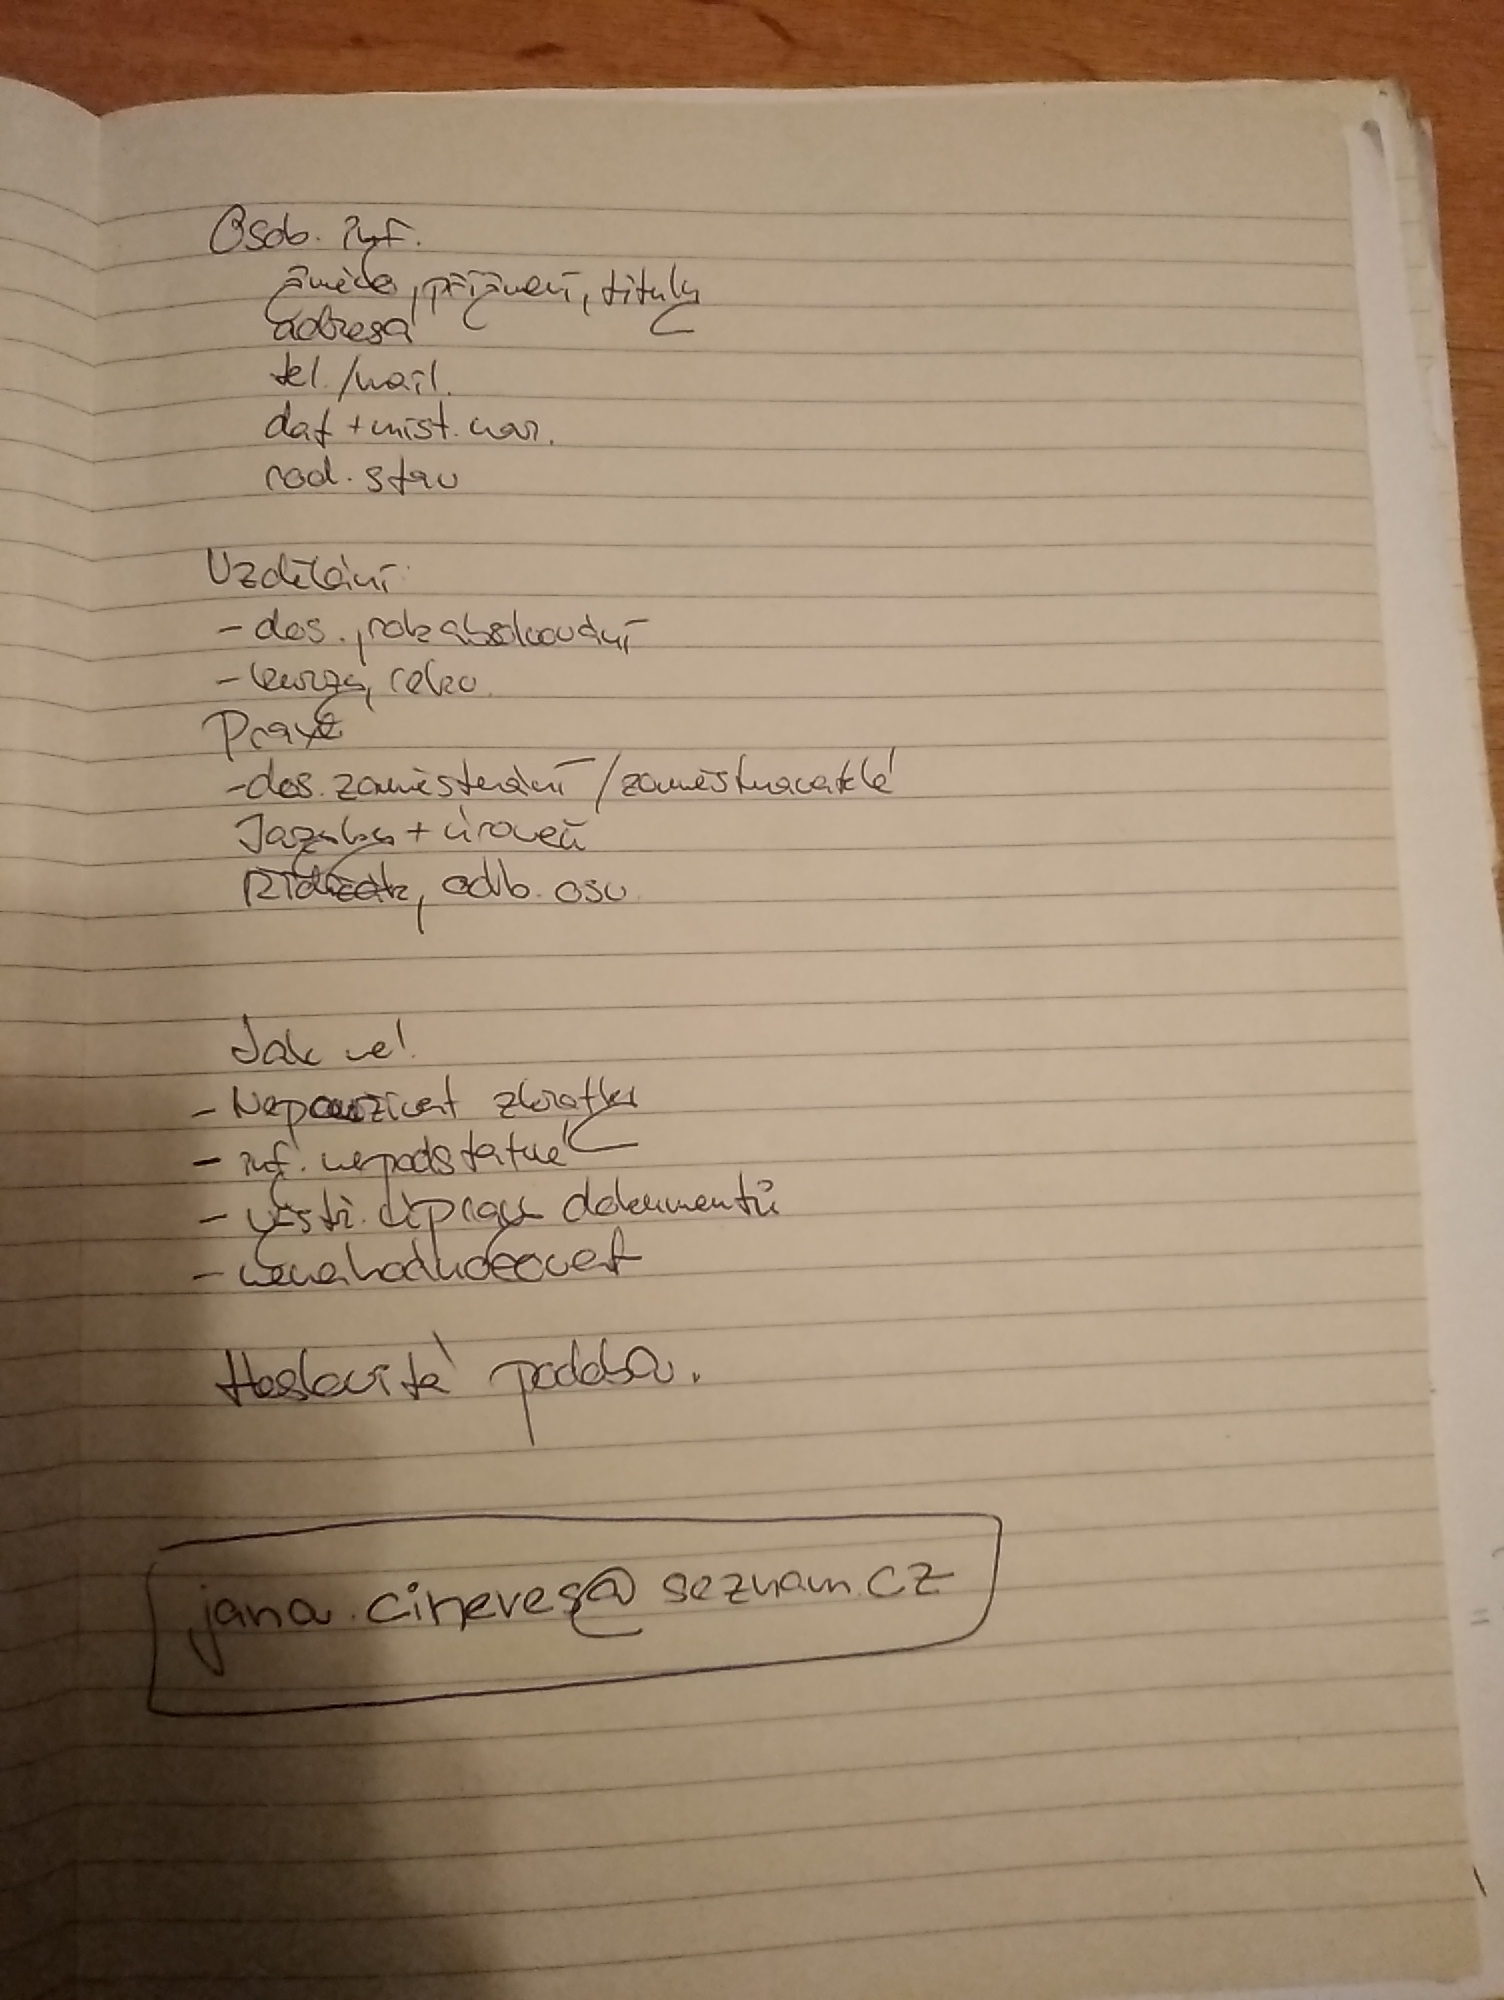 Osob. inf.
jméno, příjmení, tituly
adresa
tel./mail.
dat + míst. nar.
rod. stav
Vzdělání
- dos., rok absolvování
- kurzy, rekv.
Praxe
- dos. zaměstnání / zaměstnavatelé
Jazyky + úroveň
Řidičák, odb. osv.
Jak ne!
- Nepouzívat zkratky
- inf. nepodstatné
- výstř. úpravy dokumentů
- nenahodnocovat
Heslovitá podoba.
jana.cineves@seznam.cz